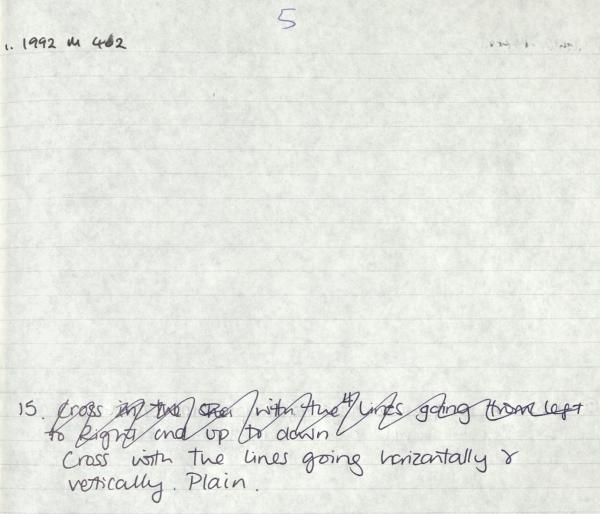 5
1992 M 462
15. Cross in the with the 4 lines going from left
to Right and up to down
Cross with the lines going horizontally &
vertically. Plain.